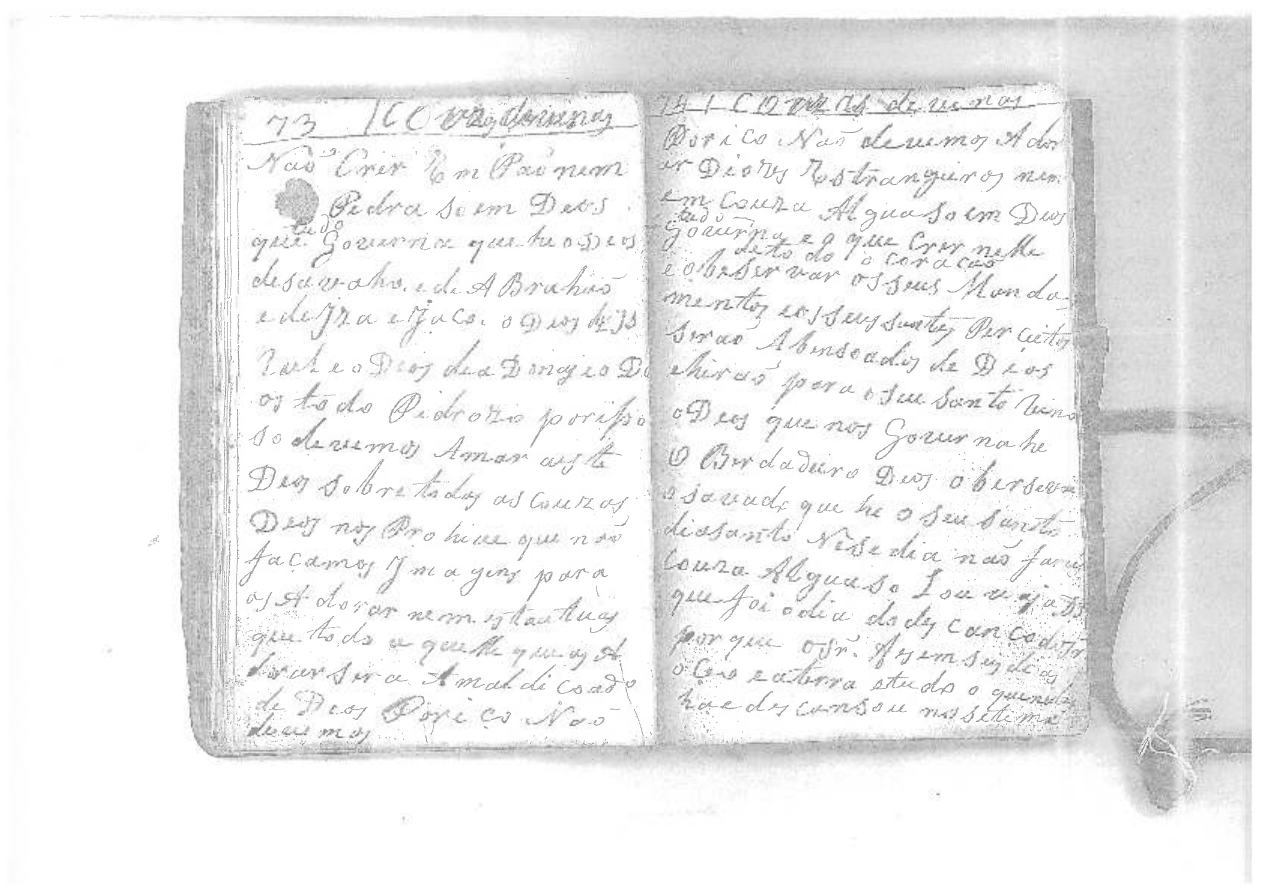 73 Couzas deuinas
Não Crer Em Paó nem
Pedra so em Deos
que tudo Gouerna que he o Deos
de e de A Brahaó
e de Iza e Jaco. o Deos de Is
Rael e o Deos de a Donaj e o De
os todo Pidrozo porißo
so deuemos Amar a este
Deos sobre todas as couzas
Deos nos Prohiue que naó
facamos Jmagens para
as Adorar nem estautuas
que todo a quelle que as A
dorar sera Amaldicoado
de Deos Por iço Naó
deuemos
74 Couzas deuinas
Por iço Naó deuemos Ador
ar Diozes Estrangeiros nem
em Couza Algua so em Deos
tudo
Gouerna e o que Crer nelle
de todo o coracaó
e obeservar os seus Manda
mentos e os seus santos Perceitos
seraó Abensoados de Deos
e hiraó para o seu santo Reino
o Deos que nos Gouerna he
O Berdadeiro Deos oberservar
o sauado que he o seu santo
dia santo Nese dia naó
couza Algua so Louuar a Ds
que foi o dia do des canco do sr
por que o sr. fes em seis dias
o Ceo e a terra e tudo o que neles
ha e descansou no setimo